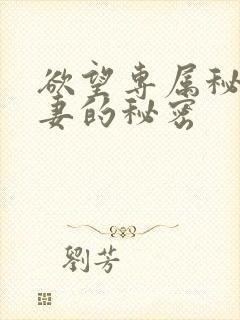 欲望专属秘
妻的秘密
劉芳